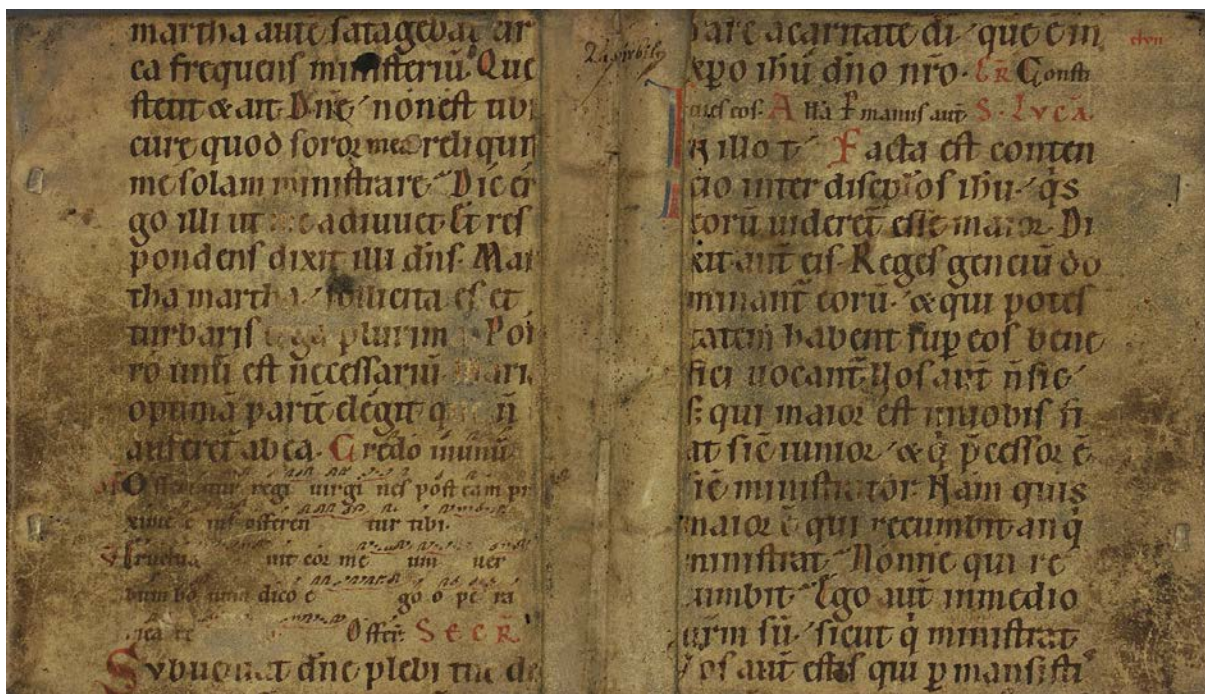 martha aute satagebat cir
ca frequens ministeriū. Que
stetit & ait Dne non est tibi
cure quod soror mea reliquit
me solam ministrare. Dic er
go illi ut me adiuuet Et res
pondens dixit illi dns. Mar
tha martha sollicita es et
turbaris erga plurima Por
ro unū est necessariū. Maria
optimā partē elegit que ñ
auferet ab ea. Credo in unū
Offerentur regi uirgines post eam pro
xime eius offeren tur tibi.
Eructuauit cor me um uer
bum bonum dico ego opera
mea re Offer. SECR
Subueniat dne plebi tue de
are a caritate di que ē in
xpo ihu dno nro. GR Consti
tues eos. Alla manus aut S. LVCA.
In illo t Facta est conten
cio inter discipulos ihu. qs
eorū uideret esse maior. Di
xit aut eis. Reges genciū do
minant eorū. & qui potes
tatem habent sup eos bene
fici uocant. Uos aut ñ sic
s; qui maior est in uobis fi
at sic iunior & q p̄cessor ē
sic ministrator. Nam quis
maior ē qui recumbit an q
ministrat. Nonne qui re
cumbit. Ego aut in medio
urm sū. sicut q ministrat
Uos aut estis qui pmansisti